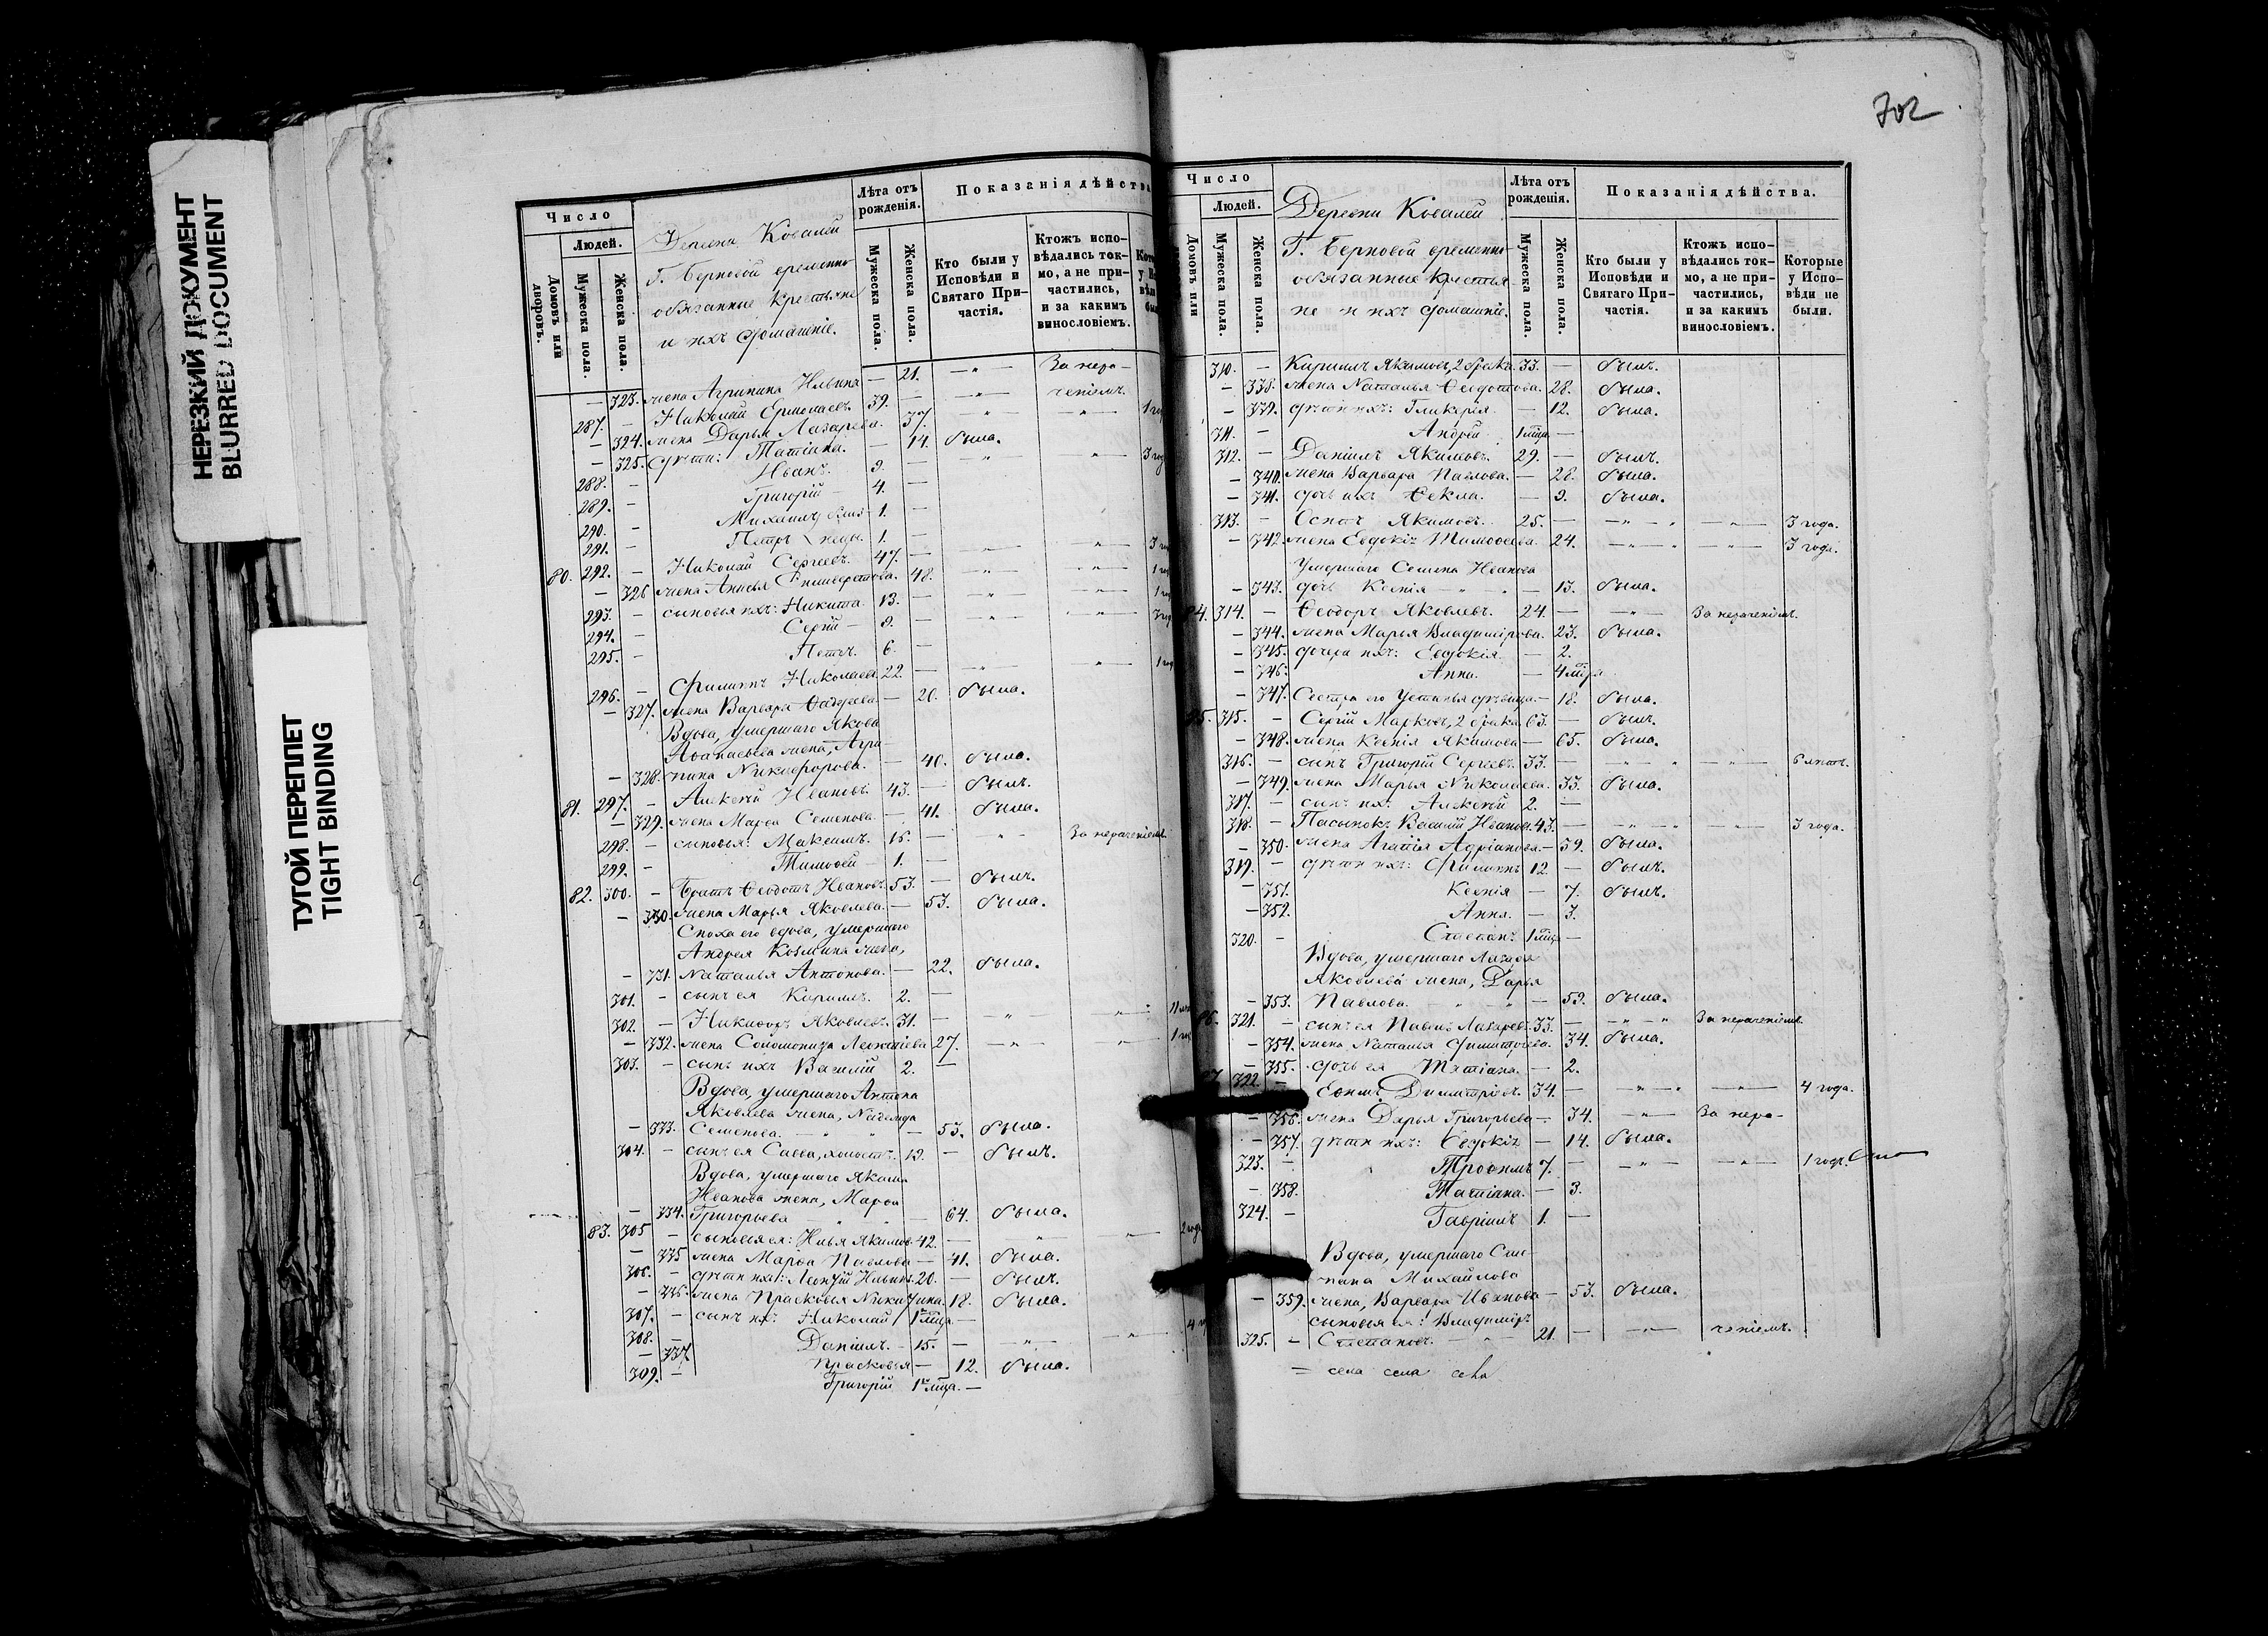 НЕРЕЗКИЙ ДОКУМЕНТ
BLURRED DOCUMENT
ТУГОЙ ПЕРЕПЛЕТ
TIGHT BINDING
Число
Людей.
Домовъ или дворовъ.
Мужеска пола.
Женска пола.
Деревни Ковалей
Г. Берновой временно-
обязанные крестьяне
и ихъ домашніе.
Лѣта отъ рожденія.
Мужеска пола.
Женска пола.
Показанія дѣйства
Кто были у Исповѣди и Святаго Причастія.
Ктожъ исповѣдались токмо, а не причастились, и за какимъ винословіемъ.
— 323. жена Агрипина Ильина — 21. —„— За нера-
287. — Николай Ермолаевъ 39. — —„— ченіемъ.
— 324. жена Дарья Лазарева. 37. —„— —„—
— 325. дѣти: Татіана. — 14. была.
288. — Иванъ. 9. —„— —„—
289. — Григорій — 4. —
290. — Михаилъ близ- 1. —
291. — Петръ нецы. 1. —
80. 292. — Николай Сергеевъ. 47. — —„— —„—
— 326 жена Анисья Сильверстова. 48. —„— —„—
293. — сыновья ихъ: Никита. 13. — —„— —„—
294. — Сергій — 9. — —„— —„—
295. — Петръ. 6. —
296. — Филиппъ Николаевъ 22. — —„— —„—
— 327. жена Варвара Фаддеева — 20. была.
Вдова, умершаго Якова
Аѳанасьева жена, Агри-
— 328. пина Никифорова. — 40. была.
81. 297. — Алексѣй Ивановъ. 43. — былъ.
— 329. жена Марѳа Семенова — 41. была.
298. — сыновья: Максимъ. 15. — —„— За нераченіемъ.
299. — Тимоѳей — 1. —
82. 300. — Братъ Ѳеодотъ Ивановъ. 53. — былъ.
— 330. жена Марья Яковлева. — 53. была.
Сноха его вдова, умершаго
Андрея Козмина жена,
— 331. Наталья Антонова. — 22. была.
301. — сынъ ея Кириллъ. 2. —
302. — Никифоръ Яковлевъ. 31. — —„— —„—
— 332. жена Соломонида Леонтіева 27. —„— —„—
303. — сынъ ихъ Василій 2. —
Вдова, умершаго Антона
Яковлева жена, Надежда
— 333. Семенова. — „ „ — 53. была.
304. — сынъ ея Савва, холостъ. 19. — былъ.
Вдова, умершаго Якима
Иванова жена, Марѳа
— 334. Григорьева „ „ — 64. была.
83. 305 — сыновья ея: Илья Якимов. 42. — —„— —„—
— 335 жена Марѳа Павлова — 41. была.
306. — дѣти ихъ: Леонтій Ильинъ. 20. — былъ.
— 336. жена Прасковья Никитина. 18. была.
307. — сынъ ихъ Николай 1 мѣца —
308. — Даніилъ. — 15. — —„— —„—
— 337. Прасковья — 12. была.
309. — Григорій 1 мѣца. —
702
Число
Людей.
Домовъ или
Мужеска пола.
Женска пола.
Деревни Ковалей
Г. Берновой временно-
обязанные крестья-
не и ихъ домашніе.
Лѣта отъ рожденія.
Мужеска пола.
Женска пола.
Показанія дѣйства.
Кто были у Исповѣди и Святаго Причастія.
Ктожъ исповѣдались токмо, а не причастились, и за какимъ винословіемъ.
Которые у Исповѣди не были.
310. — Кириллъ Якимовъ, 2 брака. 33. — былъ.
— 338. жена Наталья Ѳеодотова. 28. была.
— 339. дѣти ихъ: Гликерія — 12. была.
311. — Андрей 1 мѣца —
312. — Даніилъ Якимовъ. 29. — былъ.
— 340. жена Варвара Павлова. — 28. была.
— 341. дочь ихъ Ѳекла. — 9. была.
313. — Осипъ Якимовъ. 25. — —„— —„— 3 года.
— 342. жена Евдокія Тимоѳеева. 24. —„— —„— 3 года.
Умершаго Семена Иванова
— 343. дочь Ксенія — „ — 13. была.
84. 314. — Ѳеодоръ Яковлевъ. 24. — —„— За нераченіемъ.
— 344. жена Марья Владимірова. 23. была.
— 345. дочери ихъ: Евдокія — 2.
— 346. Анна. — 4 мѣца
— 347. Сестра его Устинья дѣвица — 18. была.
85. 315. — Сергій Марковъ, 2 брака. 63. — былъ.
— 348. жена Ксенія Якимова — 65. была.
316. — сынъ Григорій Сергеевъ. 33. — —„— —„— 6 лѣтъ.
— 349. жена Марья Николаева. 33. была.
317. — сынъ ихъ Алексѣй 2. —
318. — Пасынокъ Василій Иванов. 43. — —„— —„— 3 года.
— 350. жена Агапія Адріанова. — 39. была.
319. — дѣти ихъ: Филиппъ 12. — былъ.
— 351. Ксенія — 7. былъ.
— 352. Анна. — 3.
320. — Степанъ 1 мѣца —
Вдова, умершаго Лазаря
Яковлева жена, Дарья
— 353. Павлова. — „ „ — 59. была.
86. 321. — сынъ ея Павелъ Лазарев. 33. — —„— За нераченіемъ.
— 354. жена Наталья Димитріева. 34. была.
— 355. дочь ея Татіана. — 2.
87. 322. — Еѳимъ Димитріевъ. 34. — —„— —„— 4 года.
— 356. жена Дарья Григорьева — 34. —„— За нера-
— 357. дѣти ихъ: Евдокія — 14. была.
323. — Трофимъ 7. — —„— —„— 1 годъ.
— 358. Татіана. — 3.
324. — Гавріилъ 1. —
Вдова, умершаго Сте-
пана Михайлова
— 359. жена, Варвара Иванова — 53. была.
сыновья ея: Владиміръ
325. — Степановъ. — „ — 21. — —„— ченіемъ.
= села села села